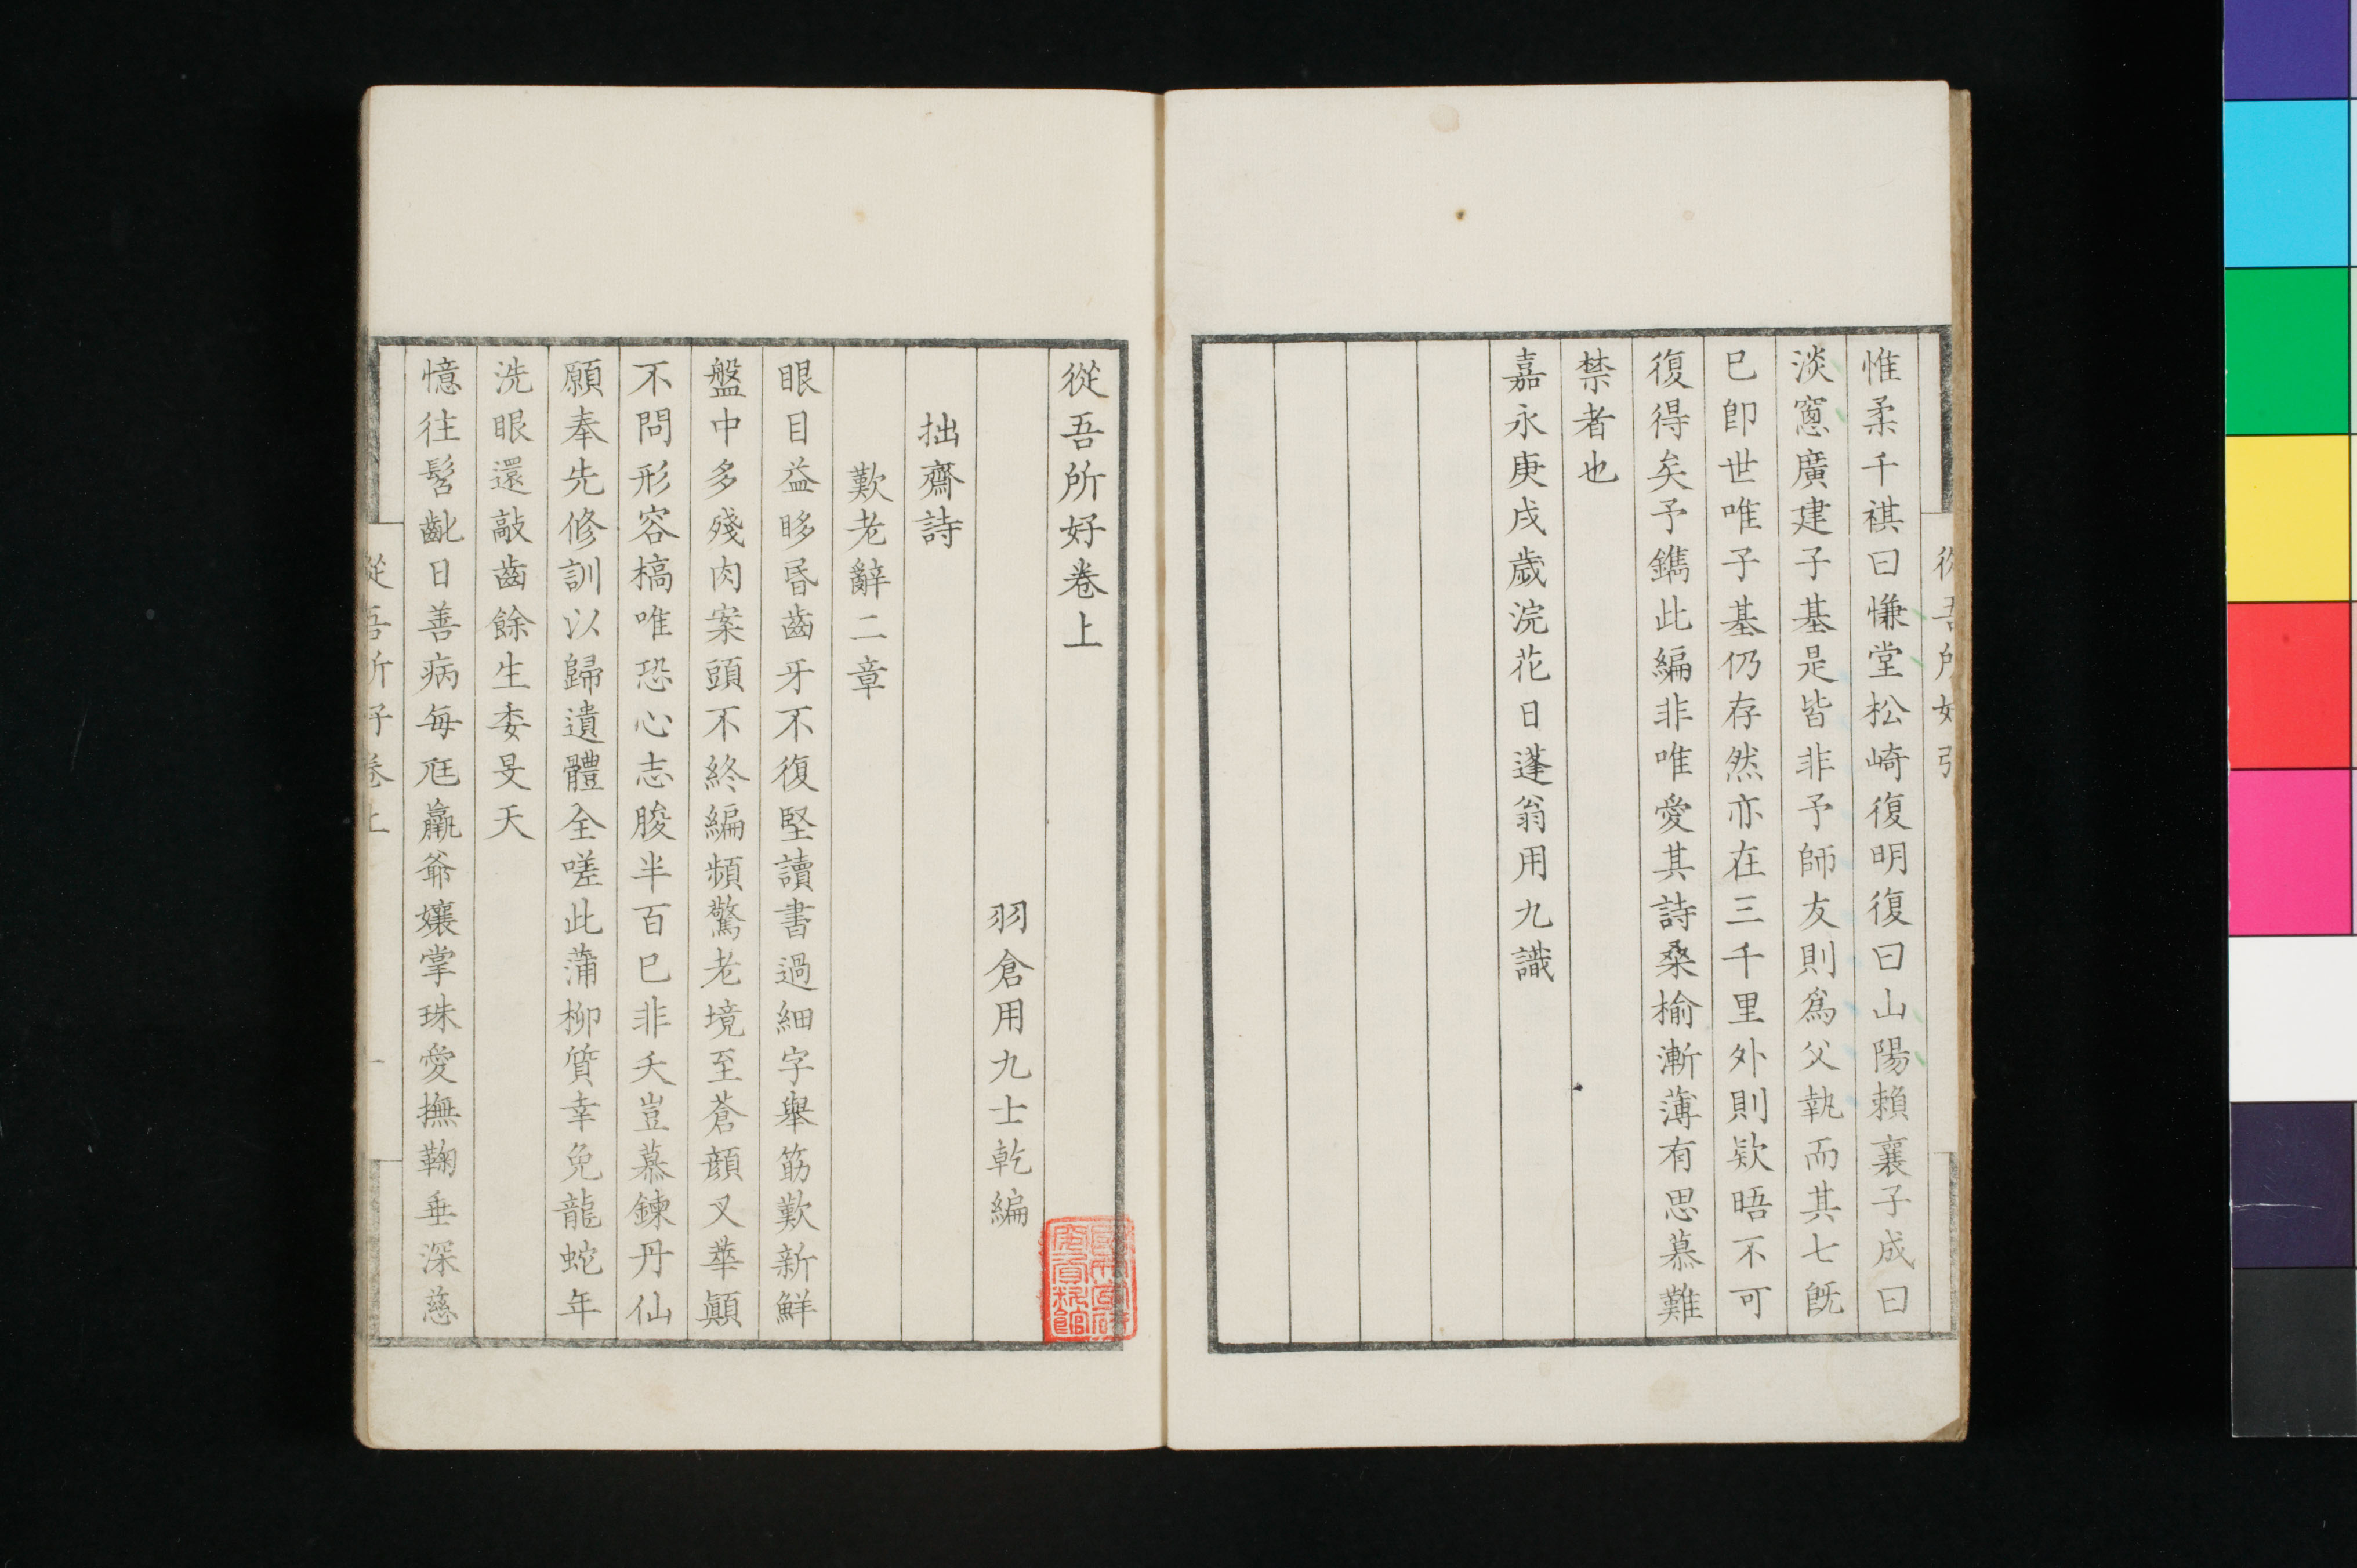 惟柔千祺曰慊堂松崎復明復曰山陽賴襄子成曰
淡窻廣建子基是皆非予師友則爲父執而其七旣
已卽世唯子基仍存然亦在三千里外則欵晤不可
復得矣予鐫此編非唯愛其詩桑榆漸薄有思慕難
禁者也
嘉永庚戌歲浣花日蓬翁用九識
從吾所好卷上
羽倉用九士乾編
拙齋詩
歎老辭二章
眼目益眵昏齒牙不復堅讀書過細字舉筯歎新鮮
盤中多殘肉案頭不終編頻驚老境至蒼顔又華顚
不問形容槁唯恐心志朘半百已非夭豈慕鍊丹仙
願奉先修訓以歸遺體全嗟此蒲柳質幸免龍蛇年
洗眼還敲齒餘生委旻天
憶往髫齔日善病每尫羸爺孃掌珠愛撫鞠垂深慈
從吾所好卷上